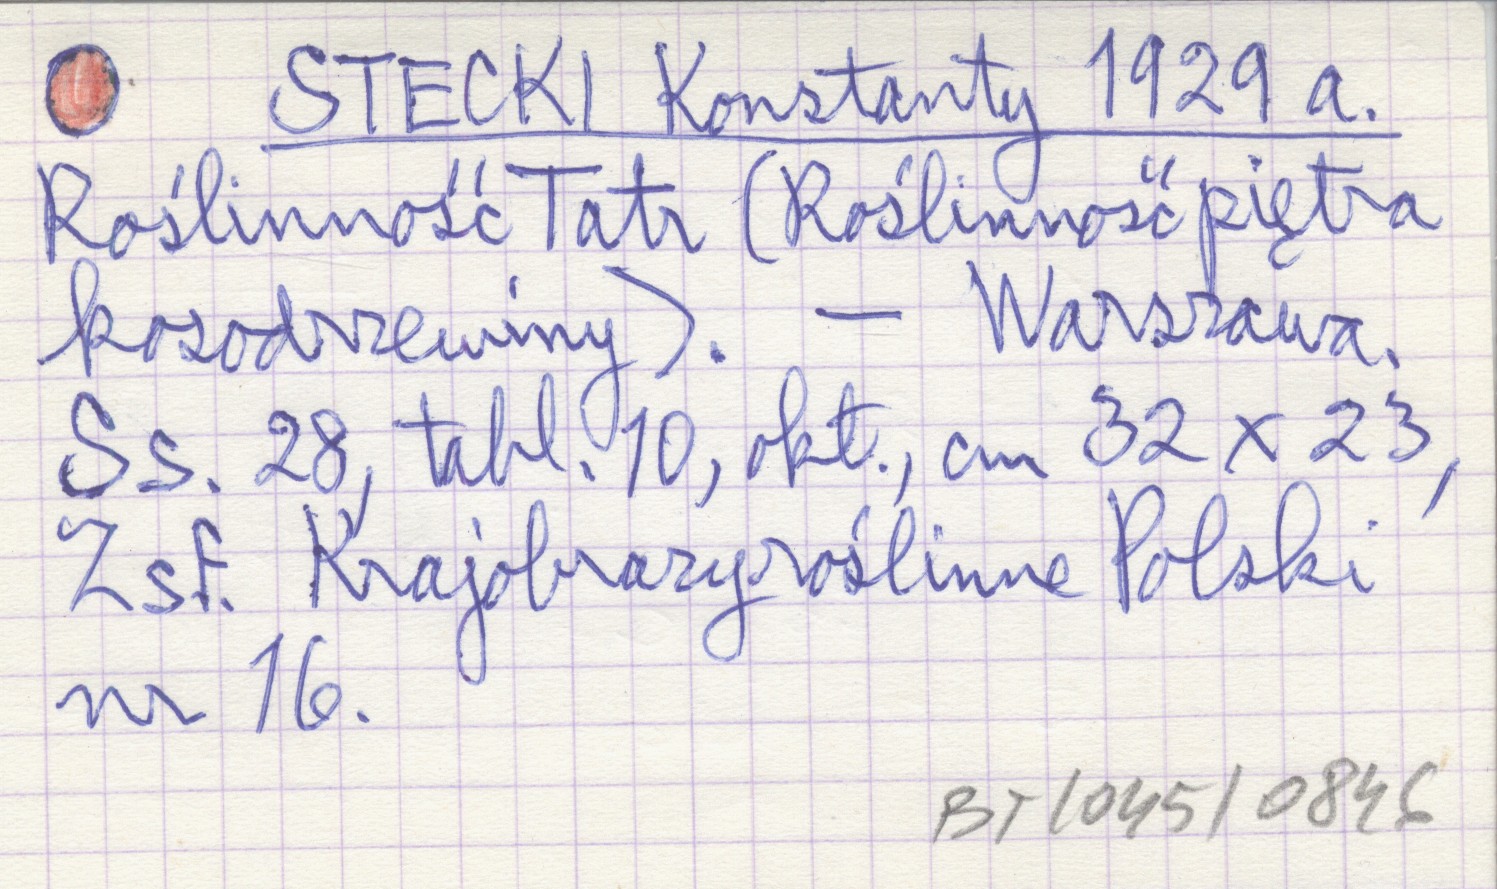 STECKI Konstanty 1929 a.
Roślinność Tatr (Roślinność piętra
kosodrzewiny). — Warszawa.
Ss. 28, tabl. 10, okł., cm 32 x 23,
Zsf. Krajobrazy roślinne Polski
nr 16.
BT/045/0846